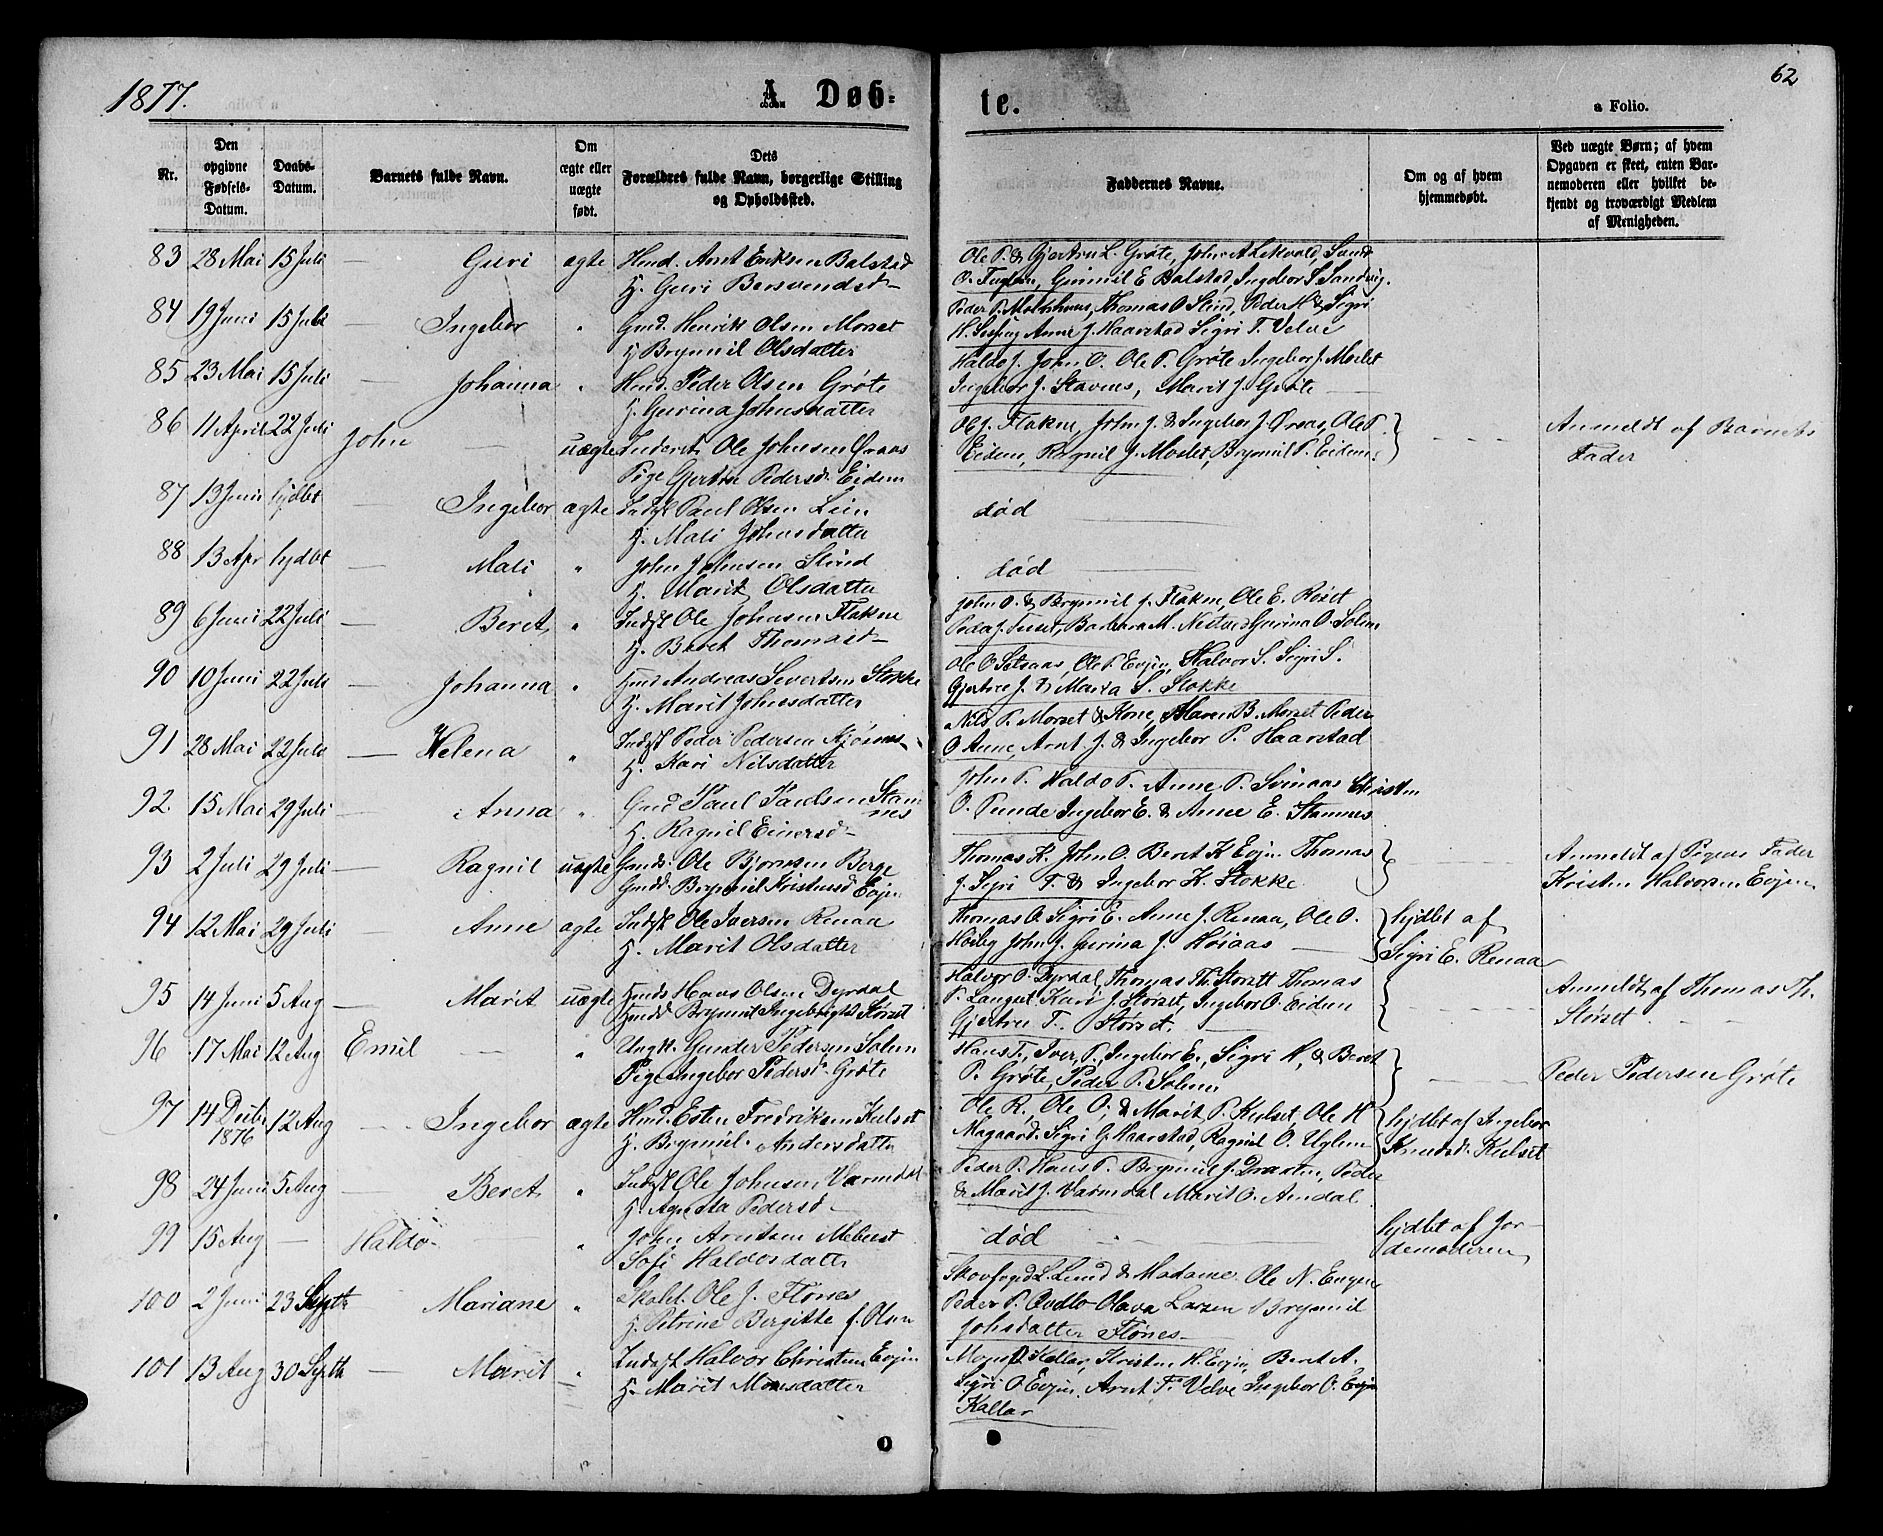 1877.
A. Døb-
te.
62
a Folio.
Nr.
Den opgivne Fødsels-Datum.
Daabs-Datum.
Barnets fulde Navn.
Om ægte eller uægte født.
Dets Forældres fulde Navn, borgerlige Stilling og Opholdssted.
Faddernes Navne.
Om og af hvem hjemmedøbt.
Ved uægte Børn; af hvem Opgaven er skeet, enten Barnemoderen eller hvilket bekjendt og troværdigt Medlem af Menigheden.
83 28 Mai 15 Juli — Guri ægte Hmd. Arnt Eriksen Balstad
H. Guri Bersvendsd
Ole P. & Gjertru L. Grøte, John A Lekvold,
O. Fuglem, Gunnil E Balstad, Ingebor S Sandvig.
84 19 Juni 15 Juli — Ingebor " Gmd. Henrik Olsen Morset
H. Brynnil Olsdatter
Peder P. Thomas O Slind, Peder H & Sigri
H. Anne J. Haarstad Sigri T. Velve
85 23 Mai 15 Juli — Johanna " Hmd. Peder Olsen Grøte
H. Gurina Johnsdatter
Haldo J. John O. Ole P. Grøte Ingebor J. Moslet
Ingebor J. Stavnes, Marit J. Grøte
86 11 April 22 Juli John — uægte Inderst Ole Johnsen Øraas
Pige Gjertru Pedersd. Eidem
Ole J. Flakne, John J. & Ingebor J. Øraas, Ole P.
Eidem, Ragnil J. Moslet, Brynnil P. Eidem.
Anmeldt af Barnets
Fader
87 13 Juni hjdbt — Ingebor ægte Indst Paul Olsen Lien
H. Mali Johnsdatter
død
88 13 Apr hjdbt — Mali " John Johnsen Slind
H. Marit Olsdatter
død
89 6 Juni 22 Juli — Beret " Indst Ole Johnsen Flakne
H. Beret Thomasd
John O. & Brynnil J. Flakne, Ole E. Röset
Peder J. Tuset, Barbara M. Gurina O. Solem
90 10 Juni 22 Juli — Johanna " Hmd Andreas Sivertsen Stokke
H. Marit Johnsdatter
Ole O Setsaas, Ole P Evjen, Halvor S. Sigri S.
Gjertru J. & Maria S. Stokke
91 28 Mai 22 Juli — Helena " Indst Peder Pedersen
H. Kari Nilsdatter
Nils P. Morset & Kone, Maren B. Morset Peder
O Aune, Arnt J. & Ingebor P. Haarstad
92. 15 Mai 29 Juli — Anna " Gmd Paul Paulsen Stam
nes
H. Ragnil Einersd
John P. Haldo P. Anne P. Svinaas Christen
O. Punde Ingebor E. & Anne E. Stamnes
93 2 Juli 29 Juli — Ragnil uægte Gmds. Ole Bjørnsen Berge
Gmdd. Brynnil Kristensd Evjen
Thomas K. John O. Beret K Evjen Thomas
J. Sigri T. & Ingebor K. Stokke
Anmeldt af Pigens Fader
Kristen Halvorsen Evjen
94 12 Mai 29 Juli — Anne ægte Indst Ole Iversen Renaa
H. Marit Olsdatter
Thomas O. Sigri E. Anne J. Renaa, Ole O.
Høilig John J. Gurina J. Høiaas
hjdbt af
Sigri E. Renaa
95 14 Juni 5 Aug — Marit uægte Hmds Hans Olsen Dyrdal
Hmdd Brynnil Ingebrigtsd Størset
Halvor O. Dyrdal, Thomas Th. Storset Thomas
P. Langset Kari J. Størset, Ingebor O. Eidem
Gjertru T. Størset.
Anmeldt af Thomas Th.
Størset
96 17 Mai 12 Aug Emil — " Ungk. Gunder Pedersen Solem
Pige Ingebor Pedersd. Grøte
Hans T., Iver P., Ingebor E., Sigri H, & Beret
P. Grøte, Peder P. Solem
Peder Pedersen Grøte
97 14 Debr. 1876 12 Aug — Ingebor ægte Hmd. Esten Fredriksen Kulset
H. Brynnil. Andersdatter
Ole R. Ole O. & Marit P. Kulset, Ole H
Magaard. Sigri G. Haarstad, Ragnil O. Uglem
hjdbt af Ingebor
Knudsd. Kulset
98 24 Juni 5 Aug — Beret " Indst Ole Johnsen Varmdal
H. Agnsta Pedersd
Peder P. Hans P. Brynnil J. Draxten, Peder
& Marit J. Varmdal Marit O. Amdal
99 15 Aug — Haldo — " John Arntsen Mebust
Sofi Haldosdatter
død
hjdbt af Jor-
demoderen
100 2 Juni 23 Septb Mariane " Skolel. Ole J. Flønes
H. Petrine Bergitte f. Olsen
Skovfoged L. Lund & Madame. Ole N. Engen
Peder P. Qvello Olava Larsen Brynnil
Johsdatter Flønes
101 13 Aug 30 Septb — Marit " Indst Halvor Christens Evjen
H. Marit Monsdatter
Mons Kallar, Kristen H. Evjen, Beret A.
Sigri O Evjen. Arnt F. Velve Ingebor O. Evjen
Kallar